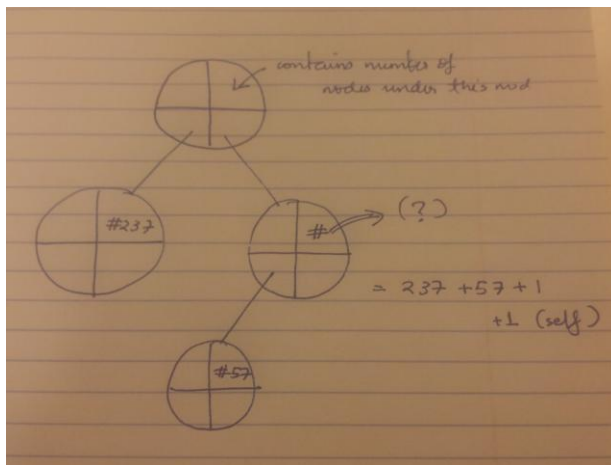 contains number of
nodes under this nod
#237
#
(?)
= 237 +57 +1
+1 (self)
#57